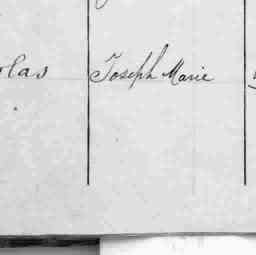 olas Joseph Marie